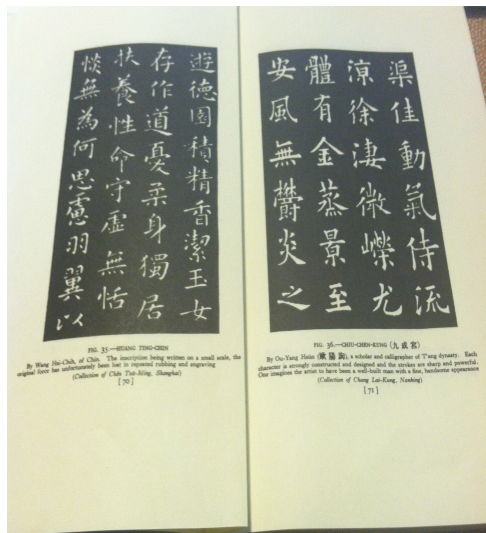 遊德園積精香潔玉女
存作道憂柔身獨居
扶養性命守虛無恬
惔無為何思慮羽翼以
FIG. 35.—HUANG TING-CHIN
By Wang Hsi-Chih, of Chin. The inscription being written on a small scale, the
original force has unfortunately been lost in repeated rubbing and engraving
(Collection of Tsŭ-Ming, Shanghai)
[70]
渠佳動氣侍流
涼徐淒微嶸尤
體有金蒸景至
安風無欝炎之
FIG. 36.—CHIU-CHEN-KUNG (九成宮)
By Ou-Yang Hsün (歐陽詢), a scholar and calligrapher of T'ang dynasty. Each
character is strongly constructed and designed and the strokes are sharp and powerful.
One imagines the artist to have been a well-built man with a fine, handsome appearance
(Collection of Chang Lai-Kung, Nanking)
[71]